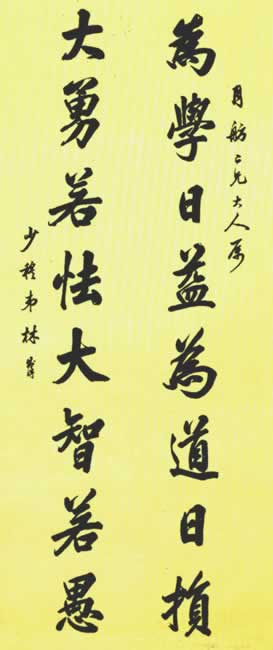 月舫二兄大人属
為學日益為道日損
大勇若怯大智若愚
少穆弟林則徐